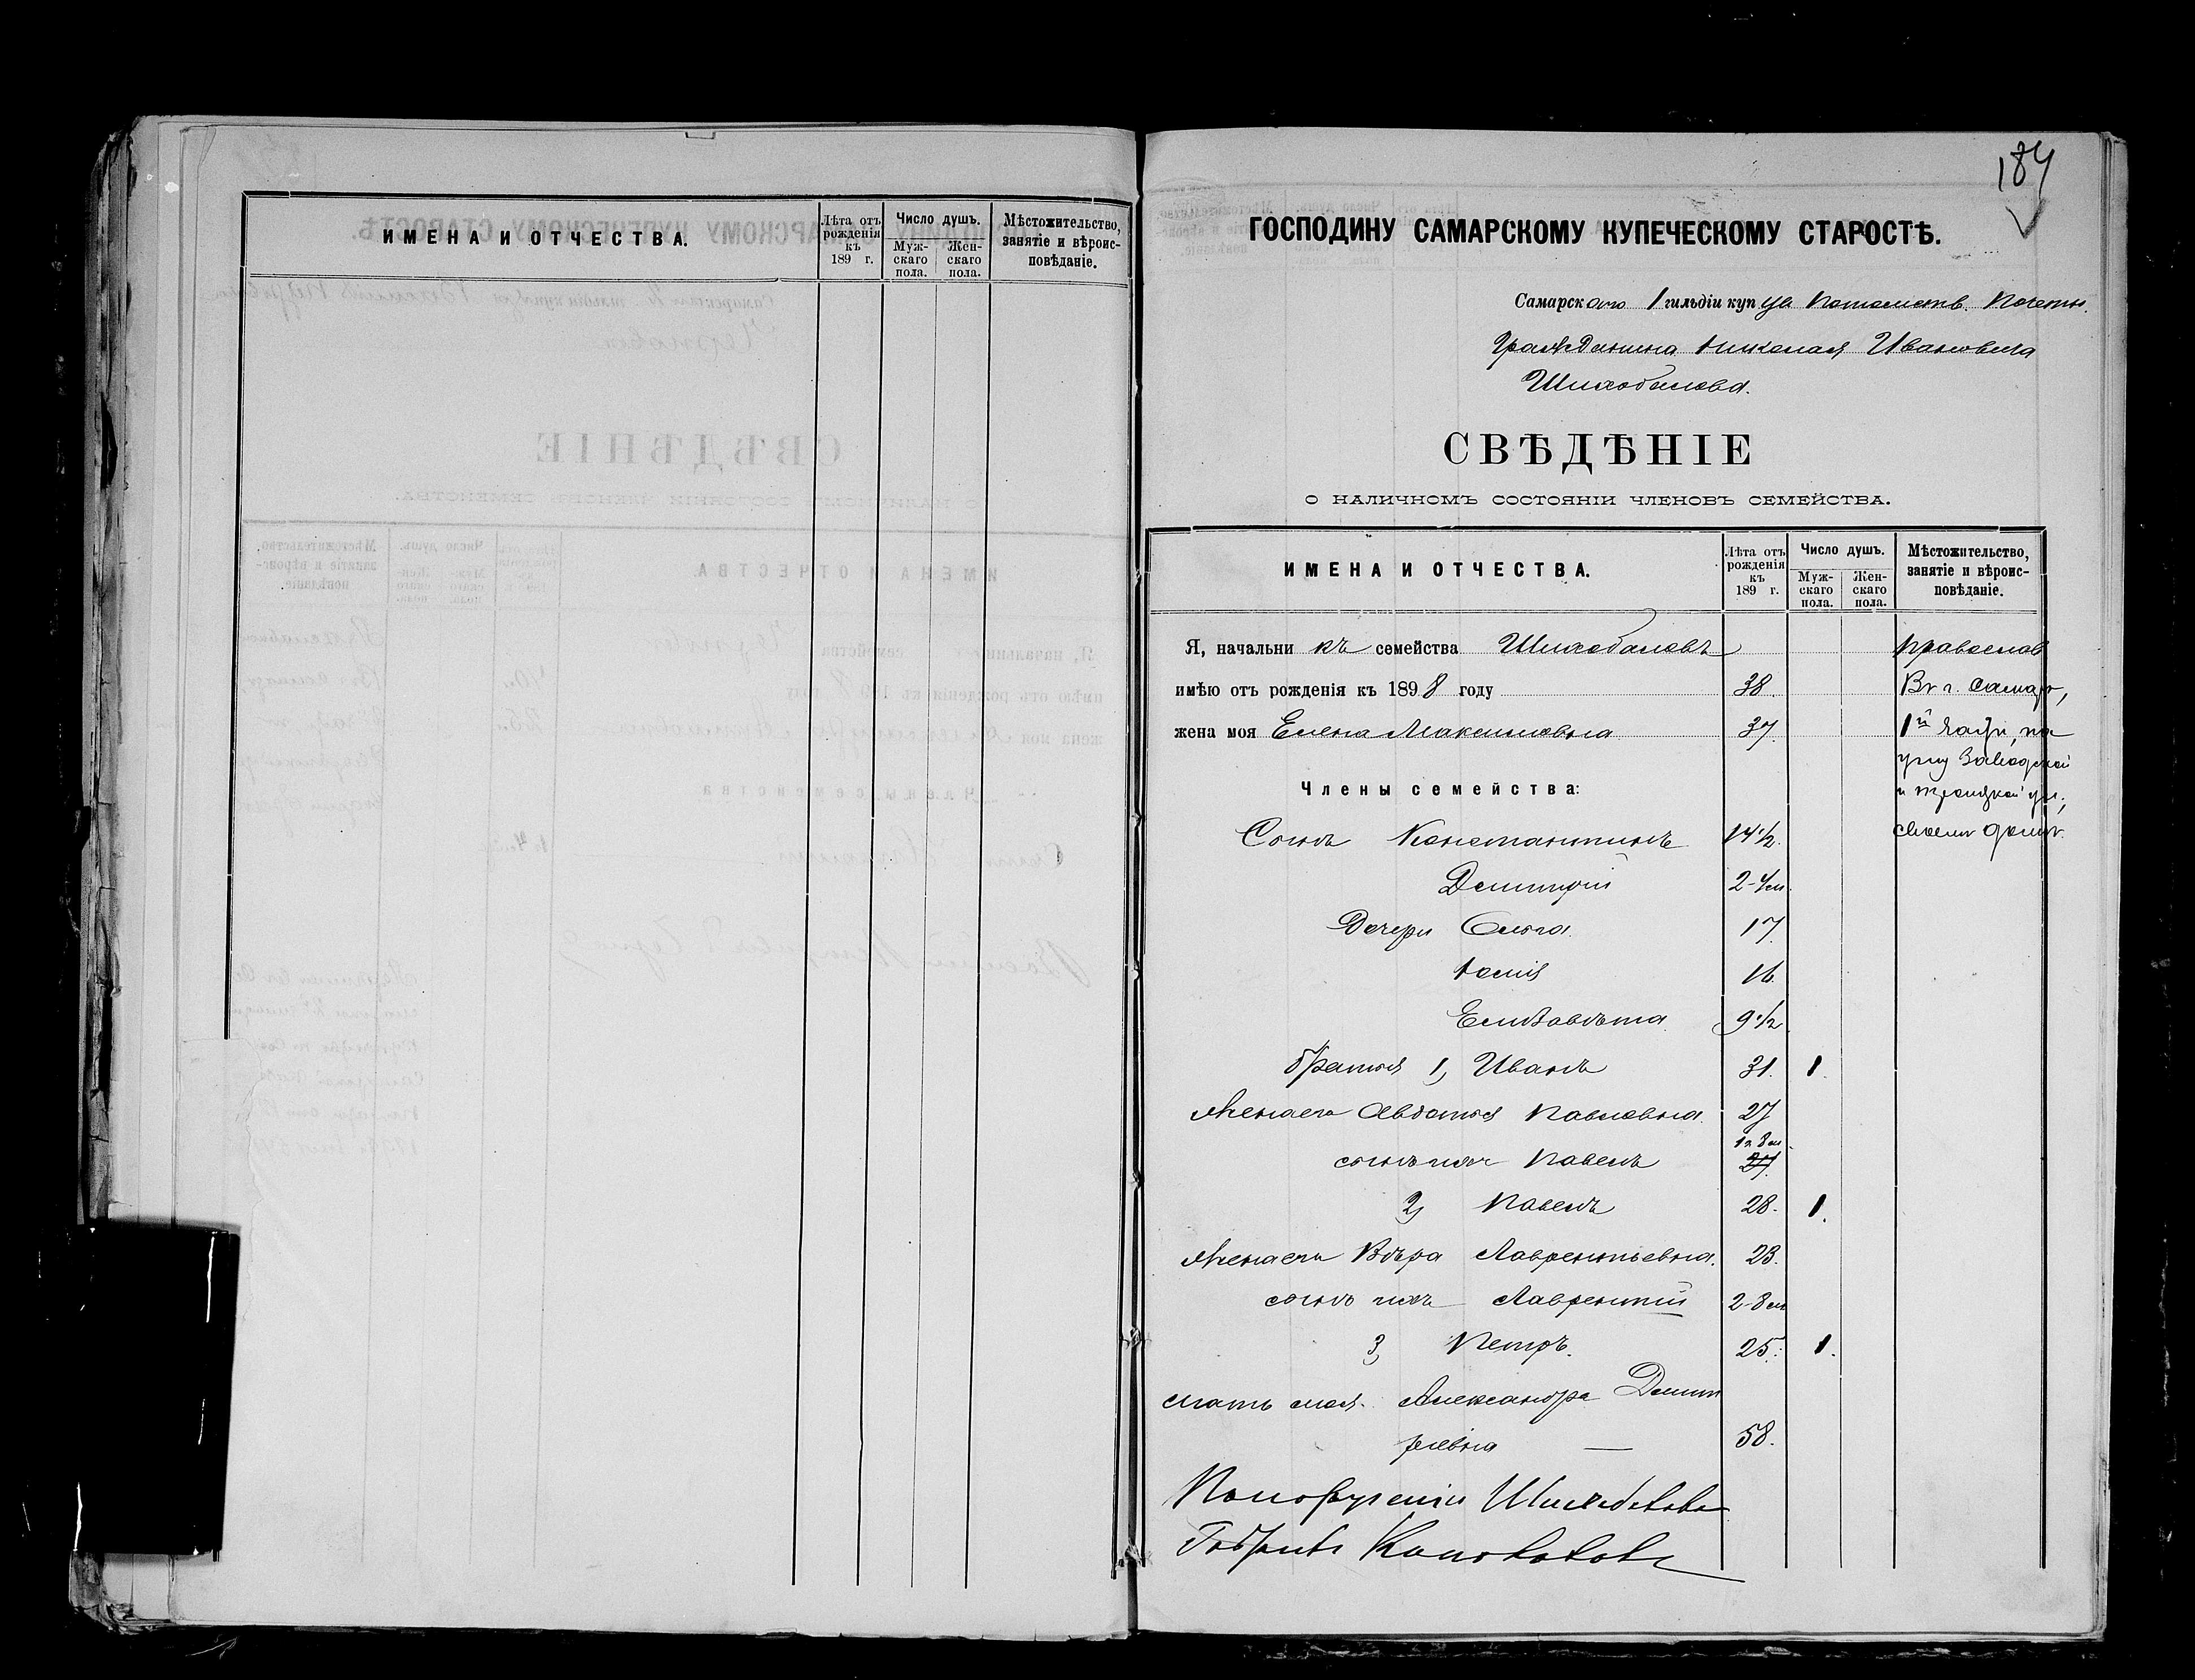 ИМЕНА И ОТЧЕСТВА.
Лѣта отъ рожденія къ 189 г.
Число душъ.
Мужскаго пола.
Женскаго пола.
Мѣстожительство, занятіе и вѣроисповѣданіе.
184
ГОСПОДИНУ САМАРСКОМУ КУПЕЧЕСКОМУ СТАРОСТѢ.
Самарскаго 1 гильдіи купца Потомств. Почетн.
Гражданина Николая Ивановича
Шихобалова.
СВѢДѢНІЕ
О НАЛИЧНОМЪ СОСТОЯНІИ ЧЛЕНОВЪ СЕМЕЙСТВА.
ИМЕНА И ОТЧЕСТВА.
Лѣта отъ рожденія къ 189 г.
Число душъ.
Мужскаго пола.
Женскаго пола.
Мѣстожительство, занятіе и вѣроисповѣданіе.
Я, начальникъ семейства Шихобаловъ православ
имѣю отъ рожденія къ 1898 году 38. Въ г. Самарѣ,
жена моя Елена Максимовна 37. 1й части, на
углу Заводской
Члены семейства: и Троицкой ул.,
Сынъ Константинъ 14 1/2. своемъ домѣ.
Дмитрій 2-4 м.
Дочери Ольга. 17.
Юлія 16
Елизавѣта 9 1/2.
братья 1, Иванъ 31. 1.
жена его Авдотья Павловна. 27
1 г 8 м
сынъ ихъ Павелъ 27.
2, Павелъ 28. 1.
жена его Вѣра Лаврентьевна. 23.
сынъ ихъ Лаврентій 2-8 м
3, Петръ. 25. 1.
мать моя Александра Дмит
ріевна — 58.
По порученію Шихобалова